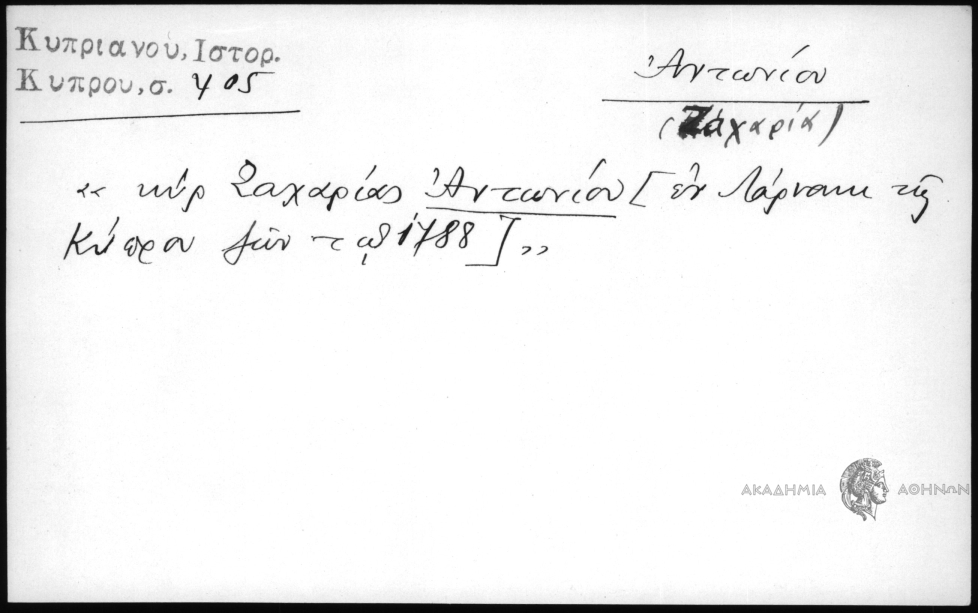 Κυπριανού, Ιστορ.
Κυπρου, σ. 405
Ἀντωνίου
(Ζαχαρία)
« κὺρ Ζαχαρίας Ἀντωνίου [ ἐν Λάρνακι τῆς
Κύπρου ζῶν τῷ 1788 ] »
ΑΚΑΔΗΜΙΑ ΑΘΗΝΩΝ